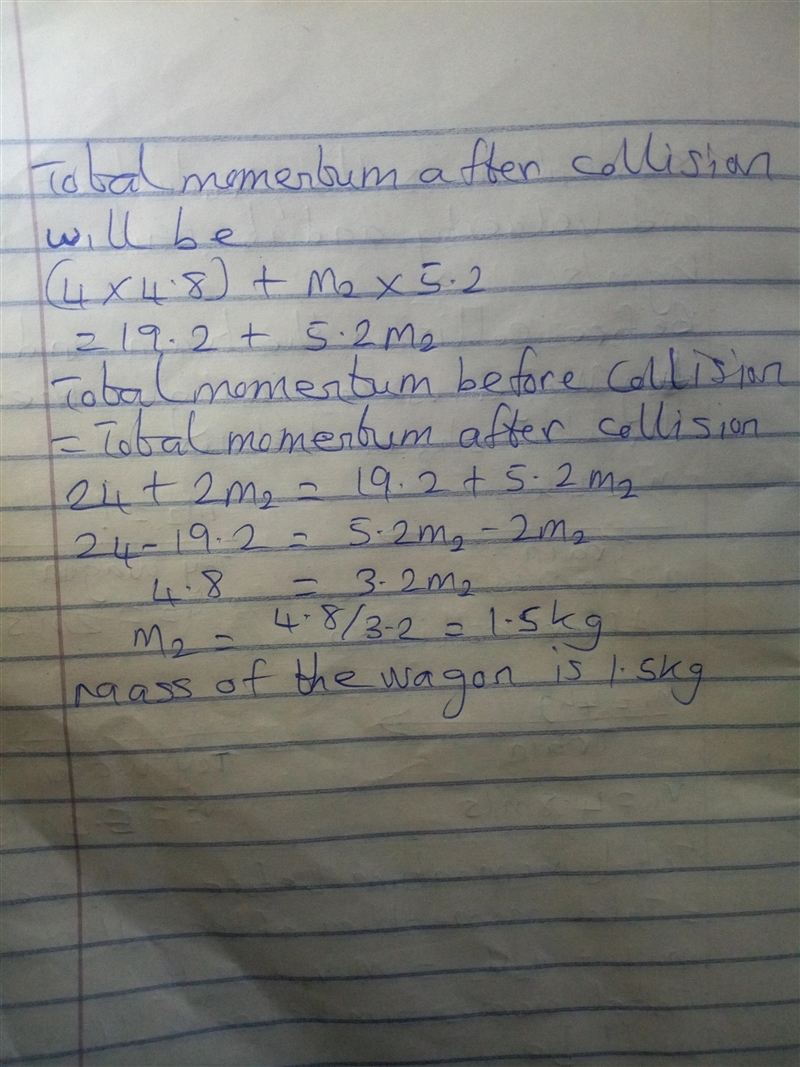 Total momentum after collision
will be
(4 × 4.8) + m₂ × 5.2
= 19.2 + 5.2m₂
Total momentum before collision
= Total momentum after collision
24 + 2m₂ = 19.2 + 5.2m₂
24 - 19.2 = 5.2m₂ - 2m₂
4.8 = 3.2m₂
m₂ = 4.8/3.2 = 1.5kg
Mass of the wagon is 1.5kg